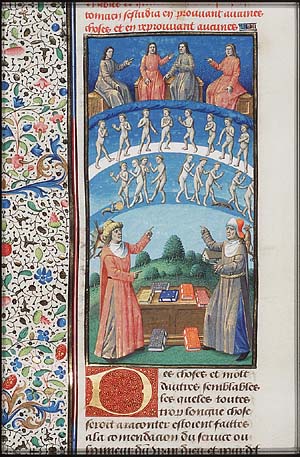 tomaien sestudia en prouuant aucunes
choses et en reprouuant aucunes
Des choses et molt
dautres semblables
les queles toutes
trop longue chose
seroit a raconter estoient faittes
a la comendacion du seruice ou